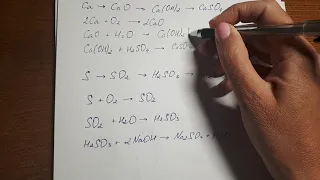 Ca → CaO → Ca(OH)₂ → CaSO₄
2Ca + O₂ → 2CaO
CaO + H₂O → Ca(OH)₂
Ca(OH)₂ + H₂SO₄ → CaSO
S → SO₂ → H₂SO₃ →
S + O₂ → SO₂
SO₂ + H₂O → H₂SO₃
H₂SO₃ + 2NaOH → Na₂SO₃ +